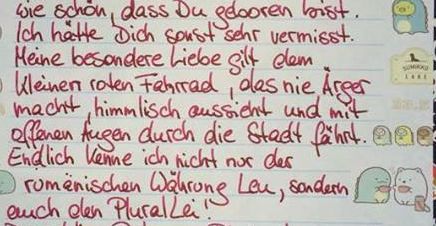 wie schön, dass Du geboren bist.
Ich hätte Dich sonst sehr vermisst.
Meine besondere Liebe gilt dem
kleinen roten Fahrrad, das nie Ärger
macht, himmlisch aussieht und mit
offenen Augen durch die Stadt fährt.
Endlich kenne ich nicht nur der
rumänischen Währung Leu, sondern
auch den Plural Lei!
SUMIKKO